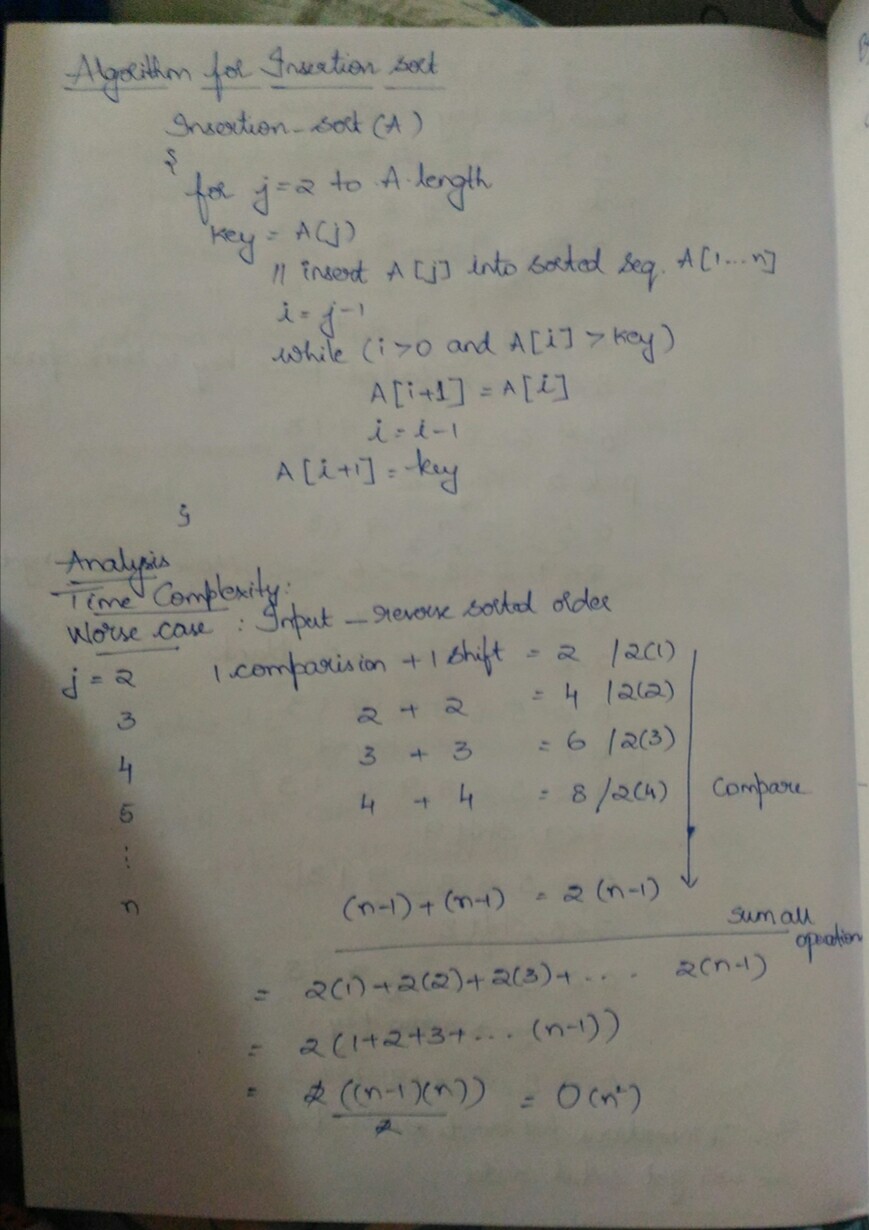 Algorithm for Insertion sort
Insertion-sort (A)
{
for j=2 to A.length
key = A(j)
// insert A[j] into sorted seq. A[1...n]
i = j-1
while (i>0 and A[i] > key)
A[i+1] = A[i]
i = i-1
A[i+1] = key
}
Analysis
Time Complexity:
Worse case : Input - reverse sorted order
j = 2 1 comparision + 1 shift = 2 /2(1)
3 2 + 2 = 4 /2(2)
4 3 + 3 = 6 /2(3)
5 4 + 4 = 8 /2(4) Compare
⋮
n (n-1) + (n-1) = 2 (n-1)
sum all
operation
= 2(1)+2(2)+2(3)+... 2(n-1)
= 2(1+2+3+... (n-1))
= 2 ((n-1)(n)) = O(n²)
2